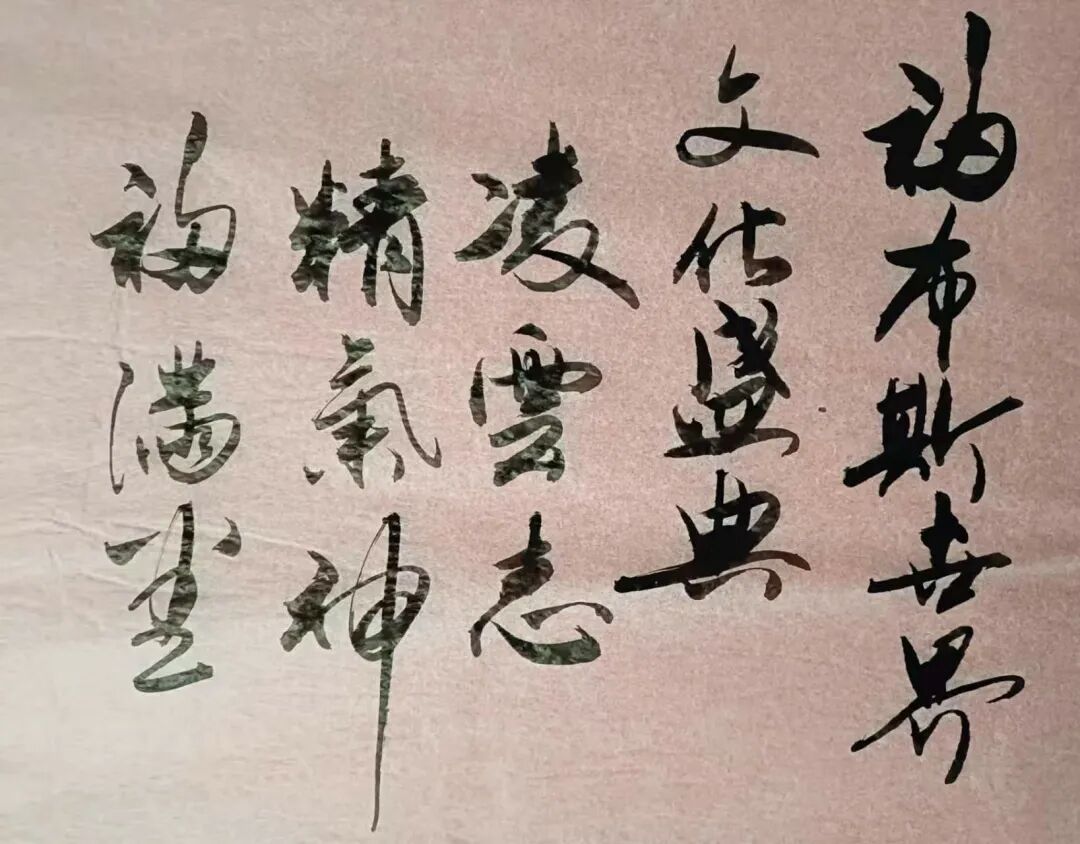 福布斯世界
文化盛典
凌雲志
精氣神
福满堂